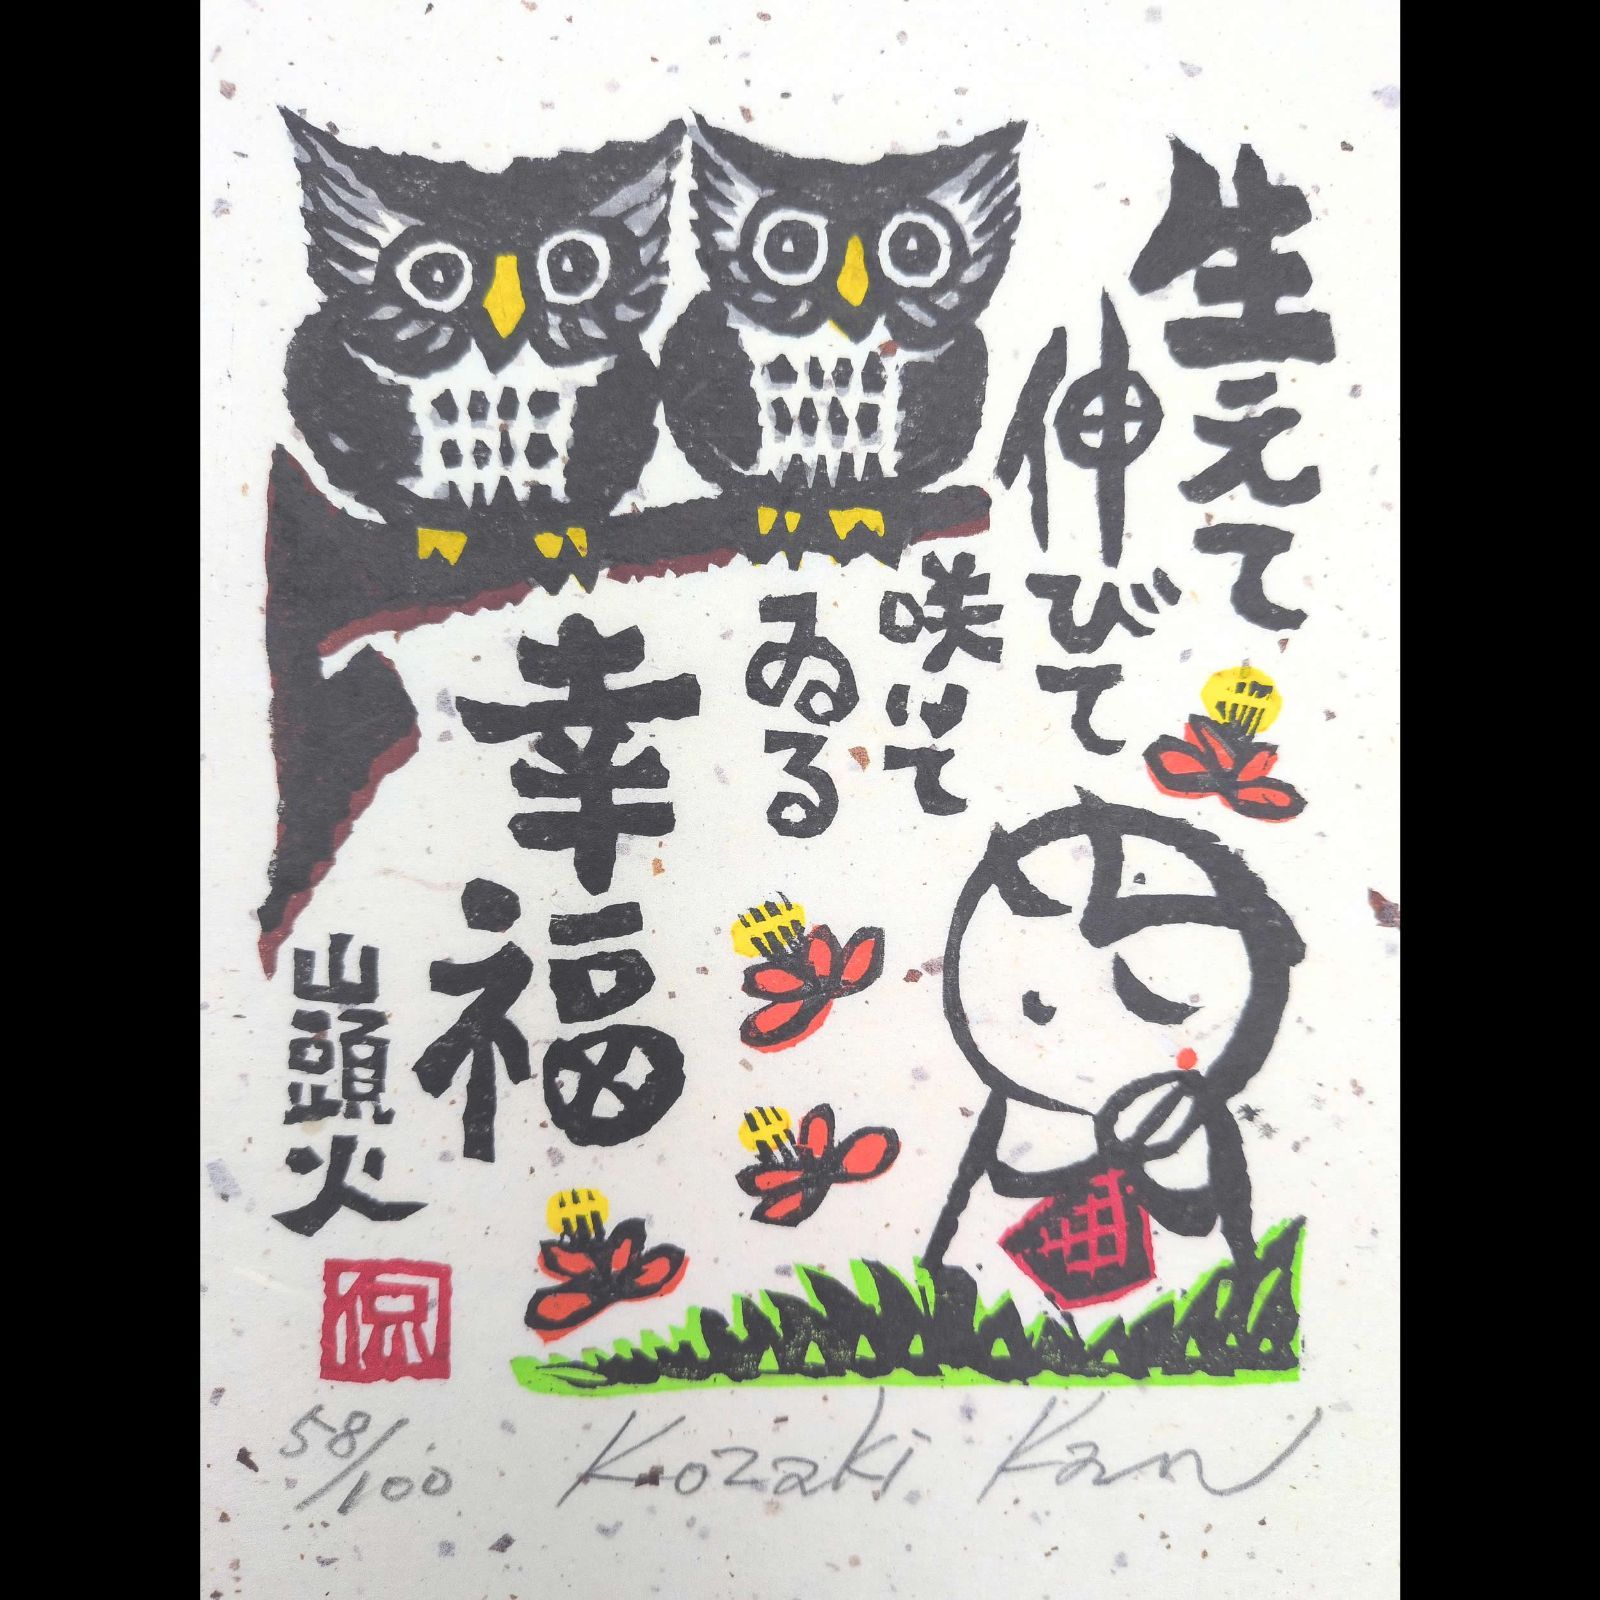 生えて
伸びて
咲いて
ゐる
幸福
山頭火
侃
58/100 Kozaki Kan